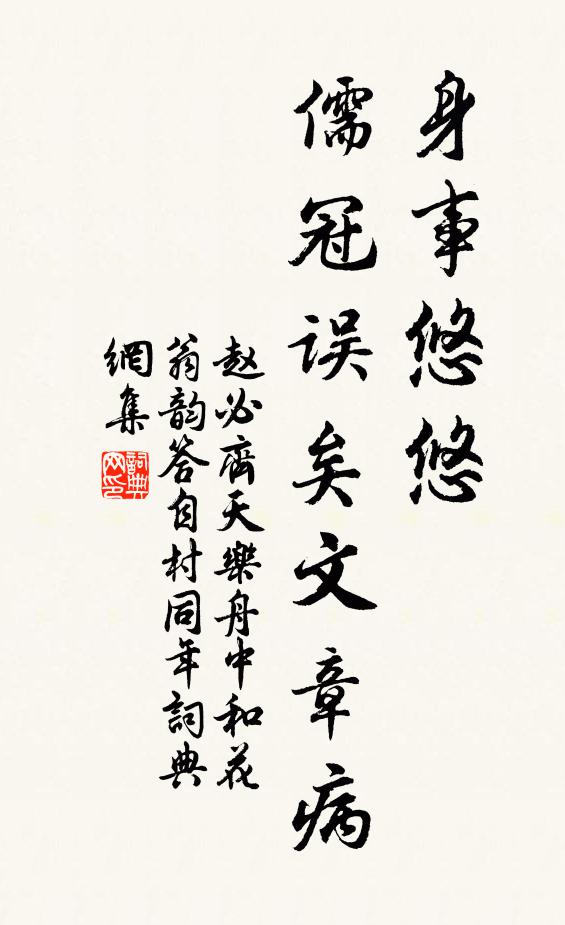 身事悠悠
儒冠误矣文章病
赵必齊天樂舟中和花
翁韵答自村同年詞典
網集
詞典
网印